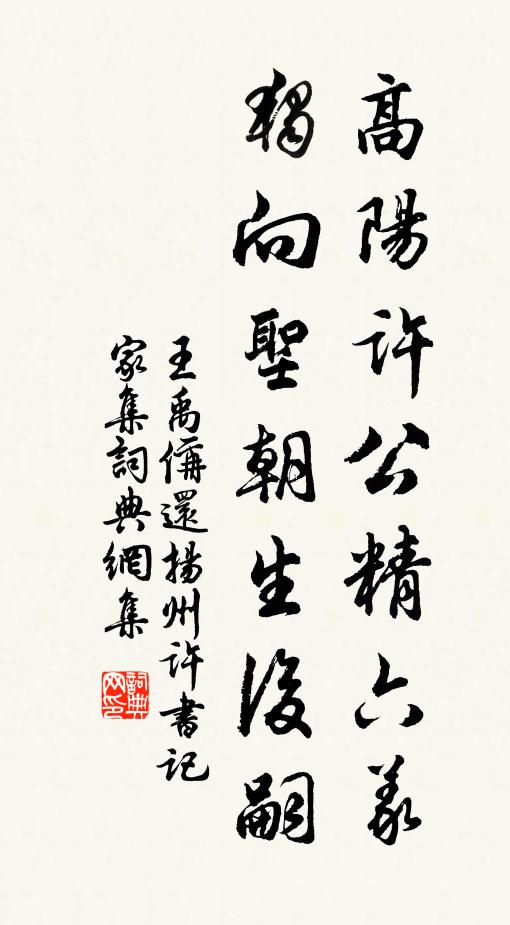 高陽許公精六義
獨向聖朝生後嗣
王禹偁還揚州許書記
家集詞典網集
詞典网印